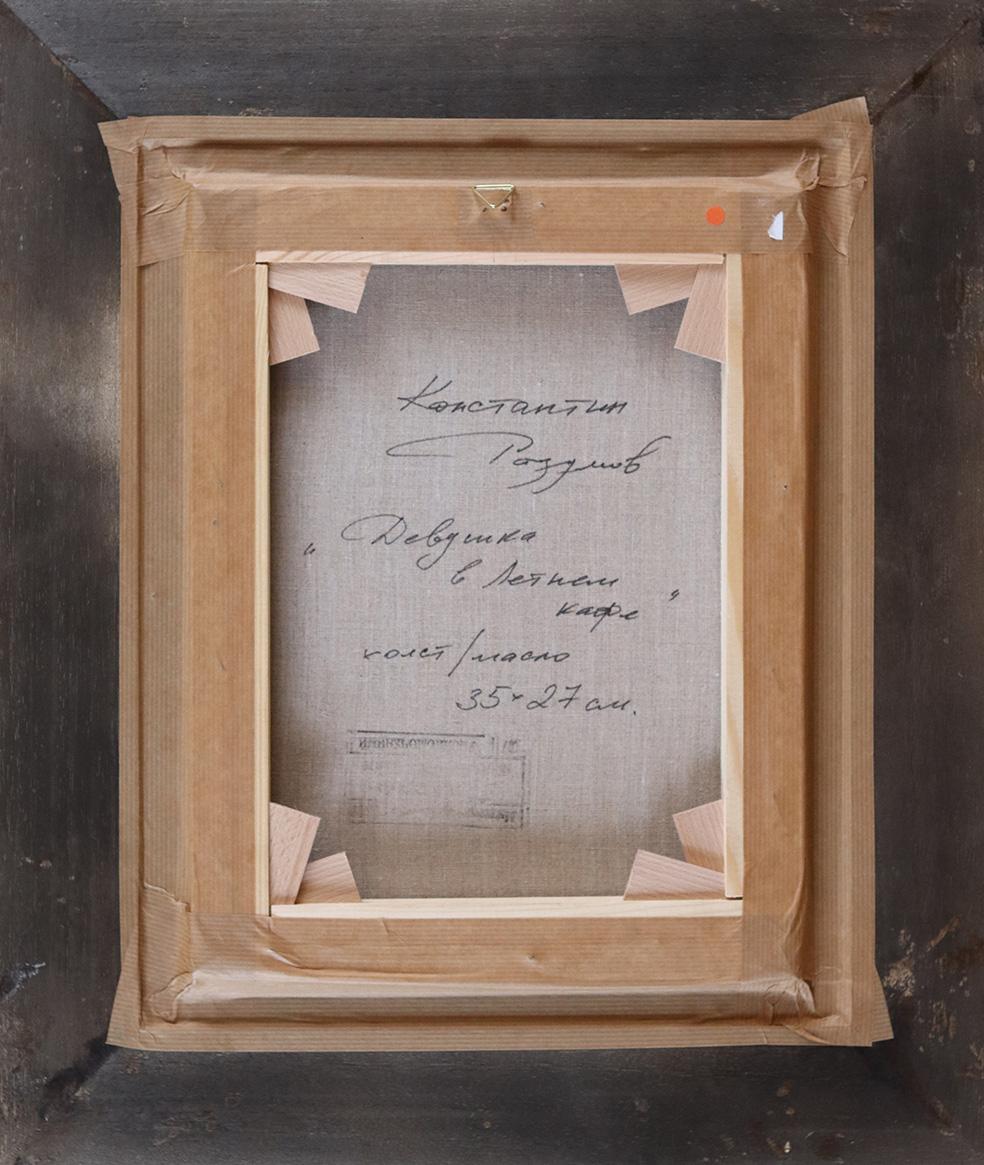 Константин
Розумов
„ Девушка
в Летнем
кафе "
холст/масло
35×27 см.